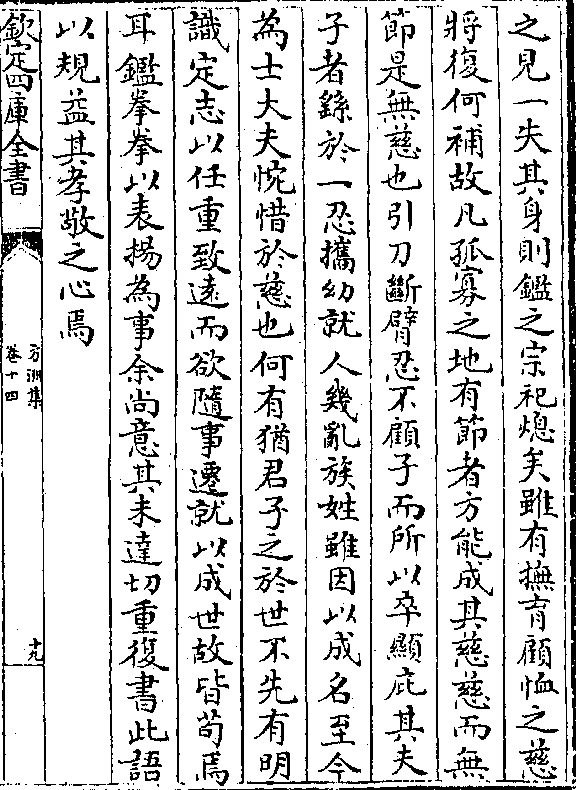 之見一失其身則鑑之宗祀熄矣雖有撫育顧恤之慈
將復何補故凡孤寡之地有節者方能成其慈慈而無
節是無慈也引刀斷臂忍不顧子而所以卒顯庇其夫
子者繇於一忍攜幼就人幾亂族姓雖因以成名至今
為士大夫惋惜於慈也何有猶君子之於世不先有明
識定志以任重致遠而欲隨事遷就以成世故皆苟焉
耳鑑拳拳以表揚為事余尚意其未達切重復書此語
以規益其孝敬之心焉
欽定四庫全書
方洲集
卷十四
十九